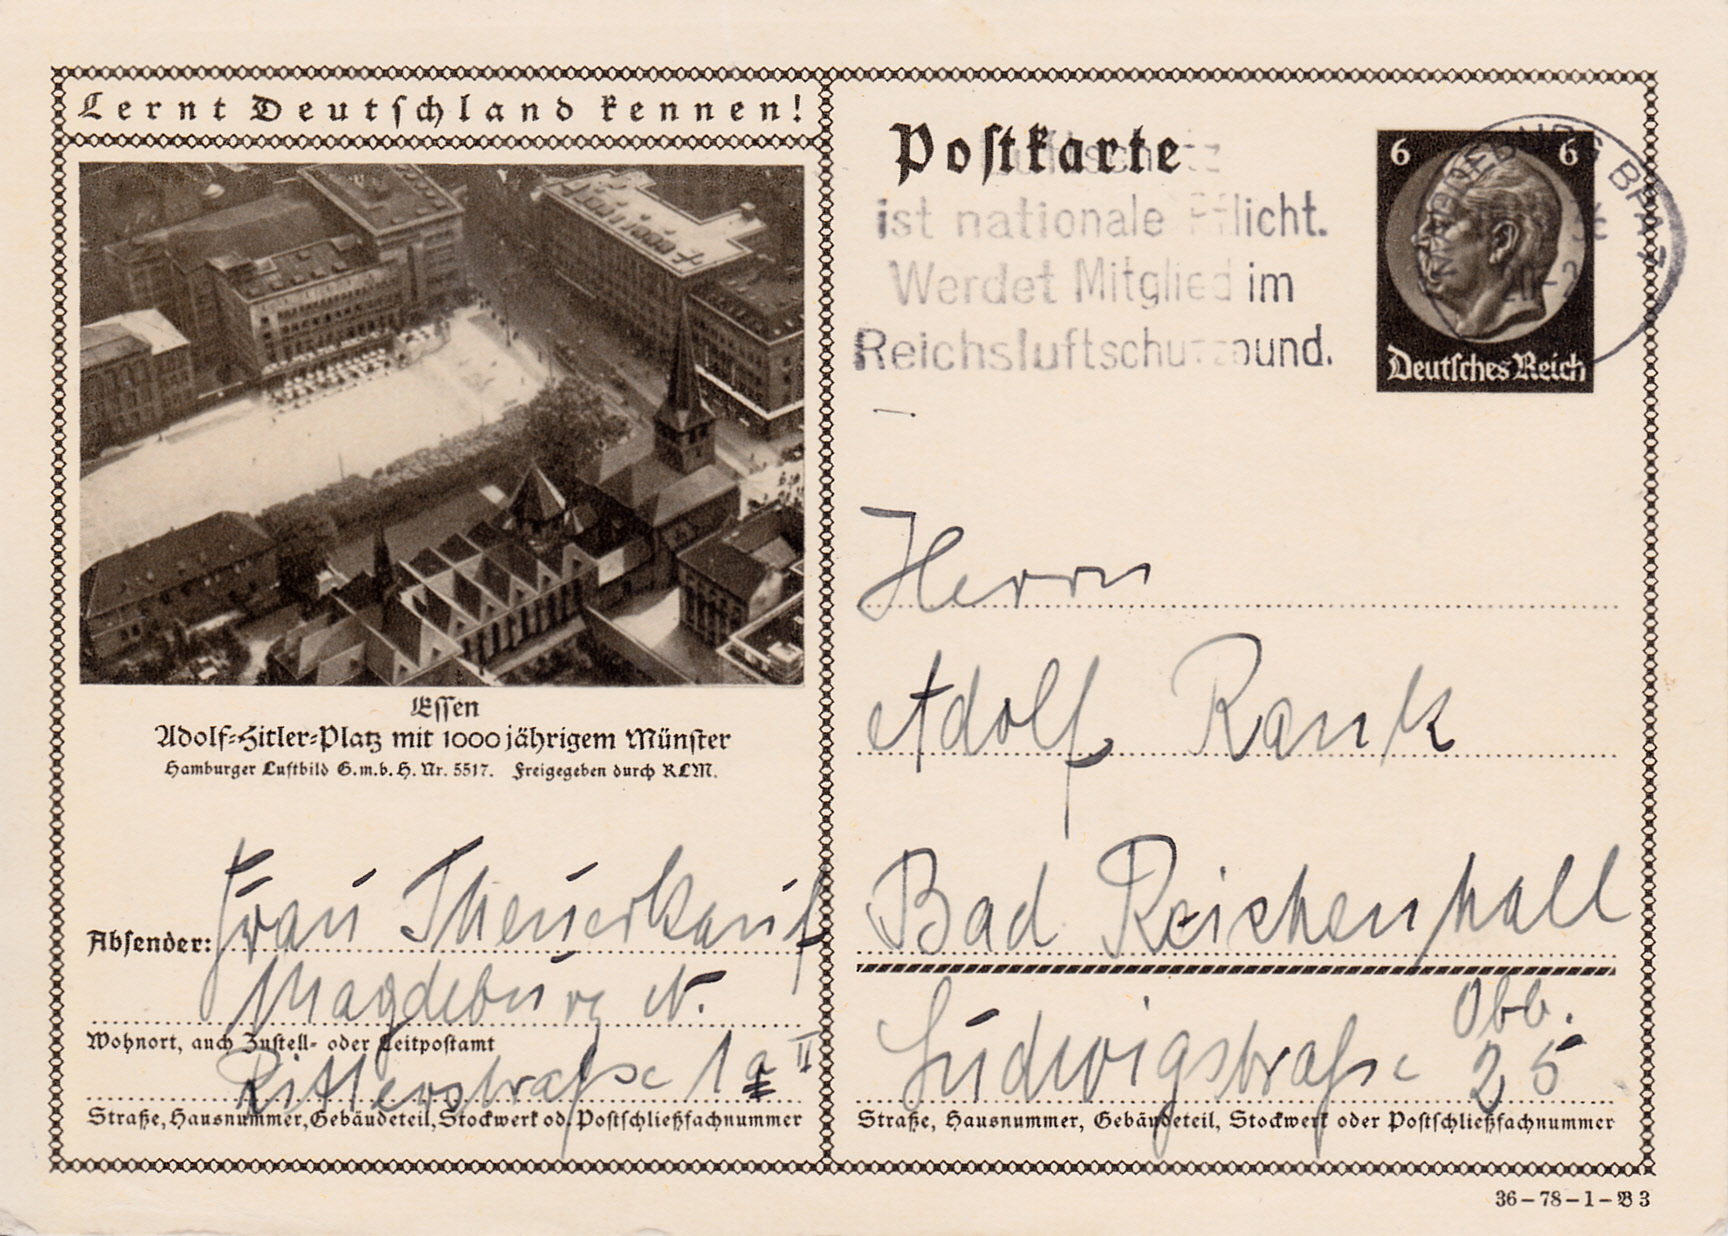 Lernt Deutschland kennen!
Essen
Adolf-Hitler-Platz mit 1000 jährigem Münster
Hamburger Luftbild G.m.b.H. Nr. 5517. Freigegeben durch RLM.
Absender: Frau Theuerkauf
Magdeburg N.
Wohnort, auch Zustell- oder Leitpostamt
Rittlerstraße 1a II
Straße, Hausnummer, Gebäudeteil, Stockwerk od. Postschließfachnummer
Postkarte
ist nationale Pflicht.
Werdet Mitglied im
Reichsluftschutzbund.
6 6
Deutsches Reich
Herrn
Adolf Rank
Bad Reichenhall
Obb.
Ludwigstraße 25
Straße, Hausnummer, Gebäudeteil, Stockwerk oder Postschließfachnummer
36-78-1-B3